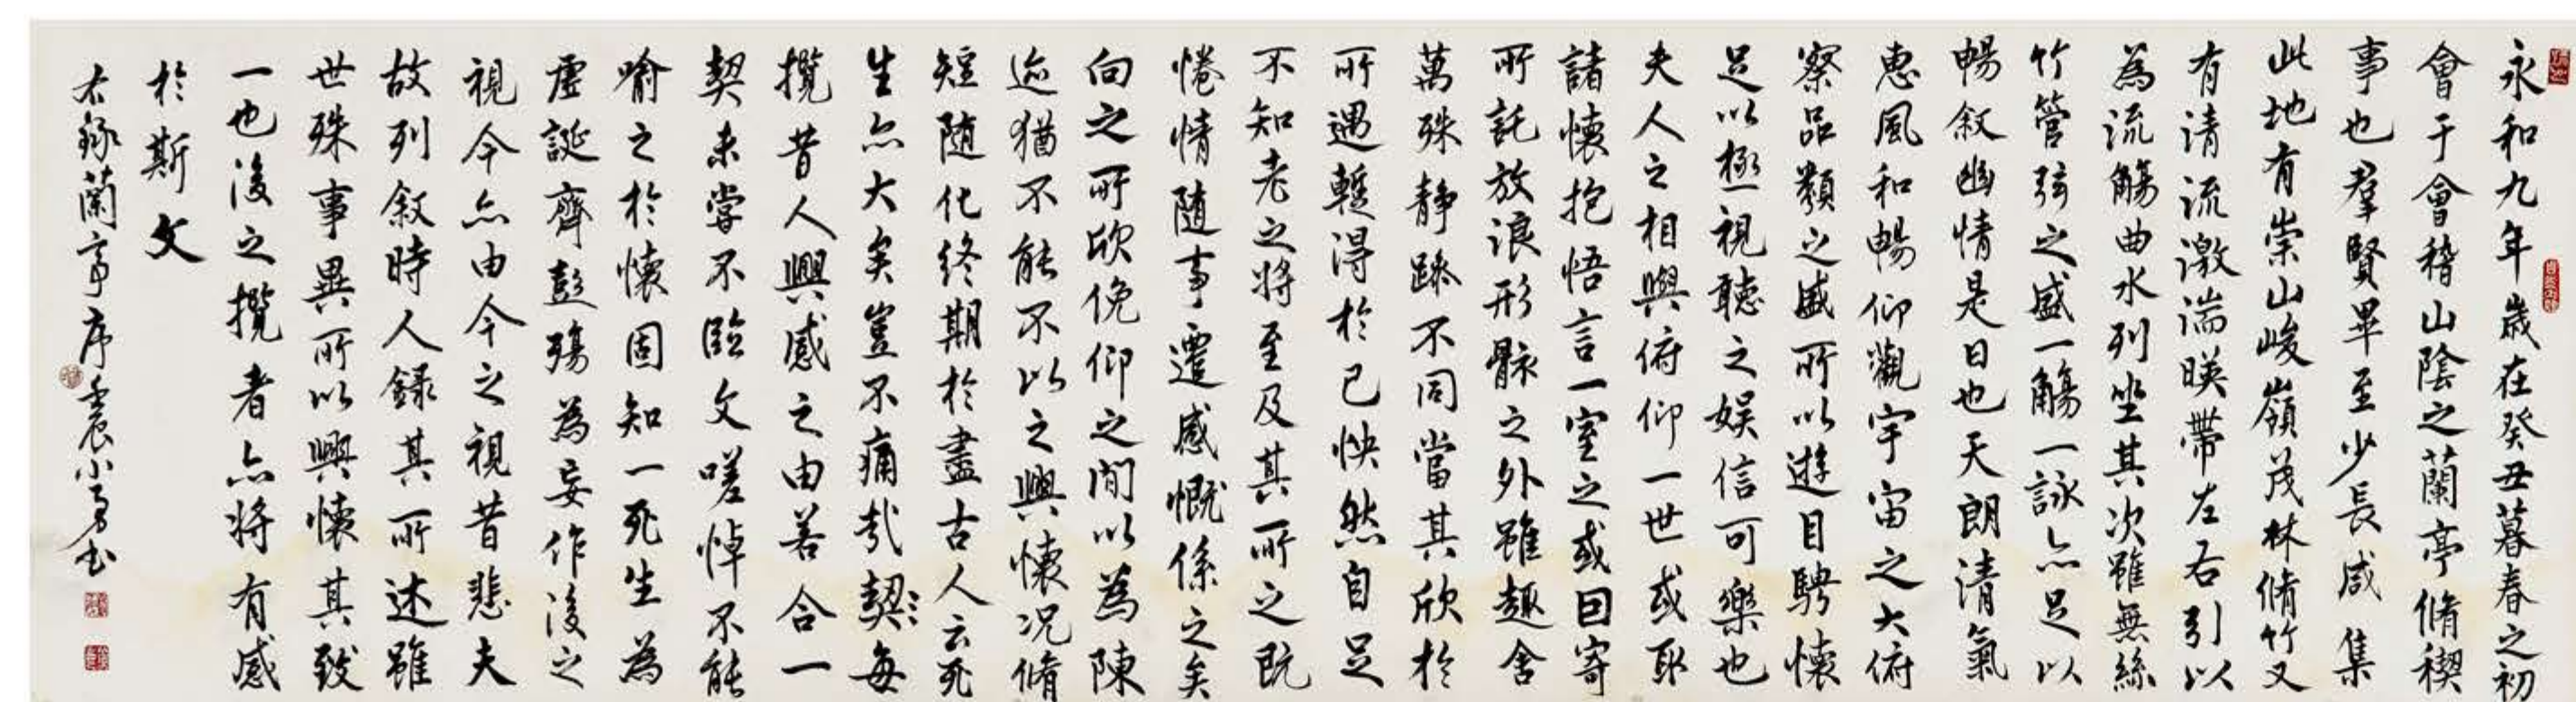 永和九年歲在癸丑暮春之初
會于會稽山陰之蘭亭脩稧
事也羣賢畢至少長咸集
此地有崇山峻嶺茂林脩竹又
有清流激湍暎帶左右引以
為流觴曲水列坐其次雖無絲
竹管弦之盛一觴一詠亦足以
暢敘幽情是日也天朗清氣
惠風和暢仰觀宇宙之大俯
察品類之盛所以遊目騁懷
足以極視聽之娛信可樂也
夫人之相與俯仰一世或取
諸懷抱悟言一室之或因寄
所託放浪形骸之外雖趣舍
萬殊靜躁不同當其欣於
所遇蹔得於己怏然自足
不知老之將至及其所之既
惓情隨事遷感慨係之矣
向之所欣俛仰之間以為陳
迹猶不能不以之興懷況脩
短隨化終期於盡古人云死
生亦大矣豈不痛哉契〻每
攬昔人興感之由若合一
契未嘗不臨文嗟悼不能
喻之於懷固知一死生為
虛誕齊彭殤為妄作後之
視今亦由今之視昔悲夫
故列敘時人錄其所述雖
世殊事異所以興懷其致
一也後之攬者亦將有感
於斯文
右錄蘭亭序壬辰小勇書